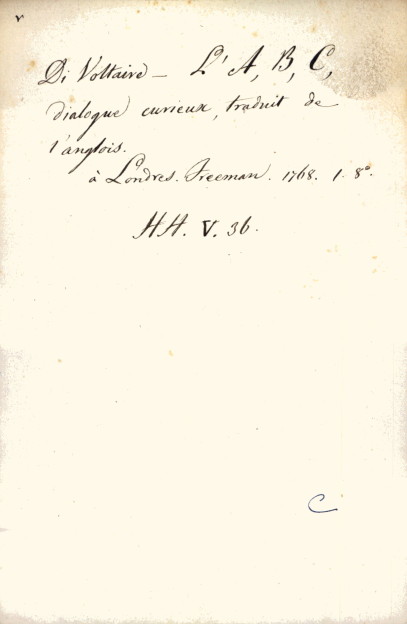 v
Di Voltaire — L'A, B, C,
dialogue curieux, traduit de
l'anglois.
à Londres. Freeman. 1768. 1. 8°.
HH. V. 36.
C